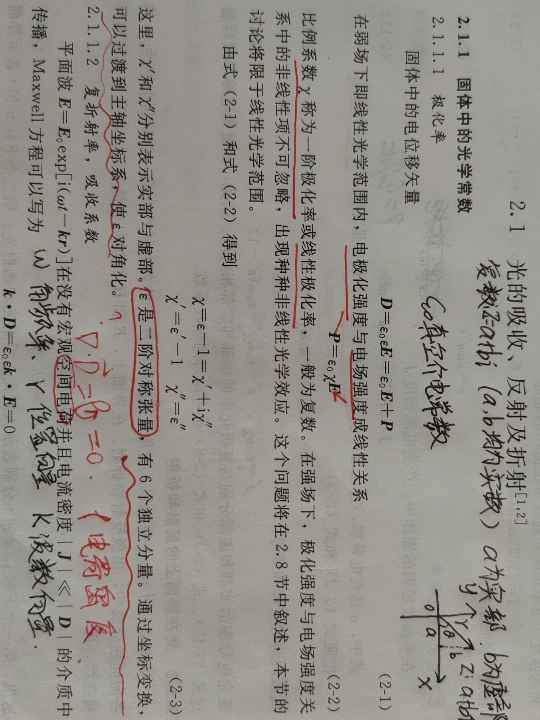 2.1 光的吸收、反射及折射[1,2]
复数Z=a+bi (a,b均为实数) a为实部 b为虚部
y r z=a+bi
θ b
o a x
2.1.1 固体中的光学常数
2.1.1.1 极化率
固体中的电位移矢量
ε₀真空介电常数
D=ε₀εE=ε₀E+P (2-1)
在弱场下即线性光学范围内，电极化强度与电场强度成线性关系
P=ε₀χE (2-2)
比例系数 χ 称为一阶极化率或线性极化率，一般为复数。在强场下，极化强度与电场强度关
系中的非线性项不可忽略，出现种种非线性光学效应。这个问题将在 2.8 节中叙述，本节的
讨论将限于线性光学范围。
由式 (2-1) 和式 (2-2) 得到
χ=ε−1=χ′+iχ″
χ′=ε′−1 χ″=ε″ (2-3)
这里，χ′和 χ″分别表示实部与虚部。ε 是二阶对称张量，有 6 个独立分量。通过坐标变换，
可以过渡到主轴坐标系，使 ε 对角化。
2.1.1.2 复折射率，吸收系数
∇·D=ρ₀=0. ρ电荷密度
平面波 E=E₀exp[i(ωt−kr)]在没有宏观空间电荷并且电流密度｜J｜≪｜D｜的介质中
传播，Maxwell 方程可以写为
ω角频率、r位置向量 k波数向量.
k·D=ε₀εk·E=0